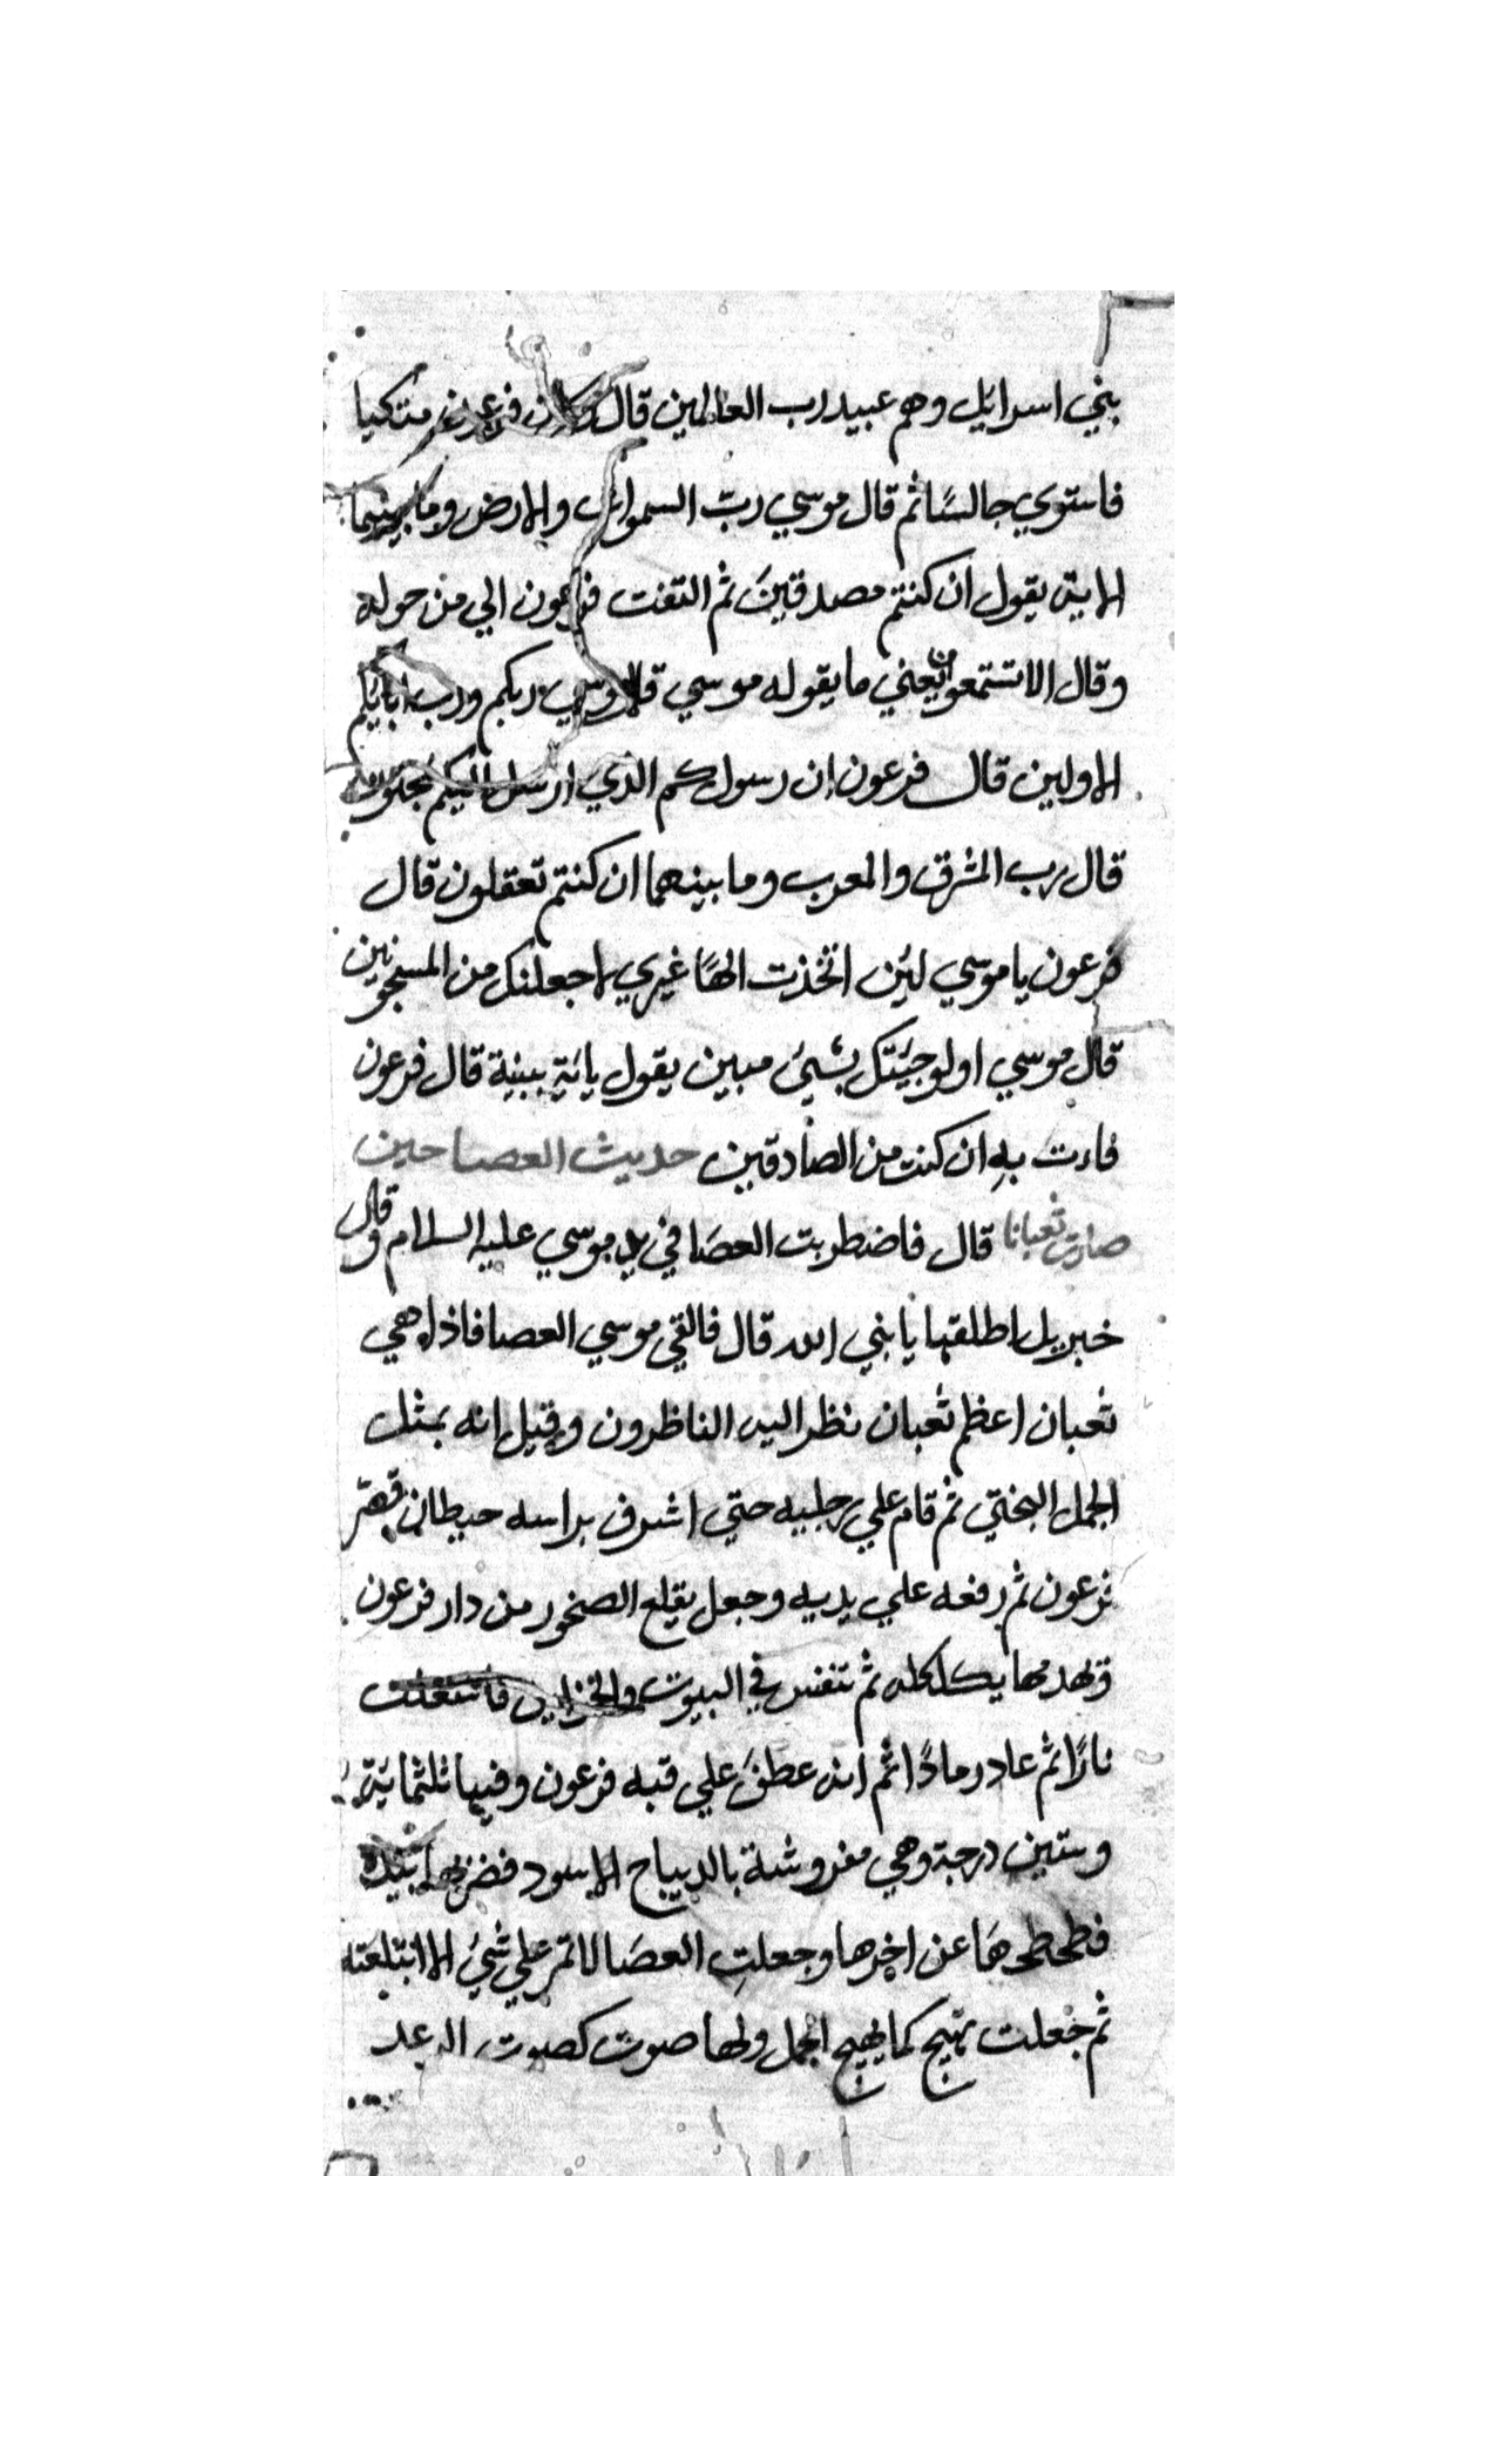 بني اسرائيل وهم عبيد رب العالمين قال وكان فرعون متكيا
فاستوي جالسًا ثم قال موسي ربّ السموات والارض وما بينهما
الاية يقول ان كنتم مصدقينَ ثم التفت فرعون الي من حوله
وقال الا تستمعون يعني ما يقوله موسي قال موسي ربكم ورب ابائكم
الاولين قال فرعون ان رسولكم الذي ارسل اليكم لمجنون
قال رب المشرق والمعرب وما بينهما ان كنتم تعقلون قال
فرعون يا موسي لئن اتخذت الهًا غيري لاجعلنك من المسجونين
قال موسي اولو جيئتك بشيئ مبين يقول بائية ببينة قال فرعون
فاءت بهِ ان كنت من الصادقين حديث العصا حين
صارت ثعبانا قال فاضطربت العصَا في يد موسي عليه السلام وقال
خبريل اطلقها يا بني الله قال فالقي موسي العصا فاذا هي
ثعبان اعظم ثعبان نظر اليه الناظرون وقيل انه بمثل
الجمل البختي ثم قام علي رجليه حتي اشرف براسه حيطان قصر
فرعون ثم رفعه علي يديه وجعل يقلع الصخور من دار فرعون
وتهدمها بكلكله ثم تنفس في البيوت والخزاين فاشتعلت
نارًا ثم عاد رمادًا ثم انه عطفَ علي قبه فرعون وفيها ثلثمائية
وستين درجة وهي مفروشة بالديباح الاسود فضربها بيده
فطحطحهَا عن اخرها وجعلتِ العصَا لا تمر علي شيئ الا ابتلعته
ثم جعلت تهيج كما يهيج الجمل ولها صوت كصوت الرعد